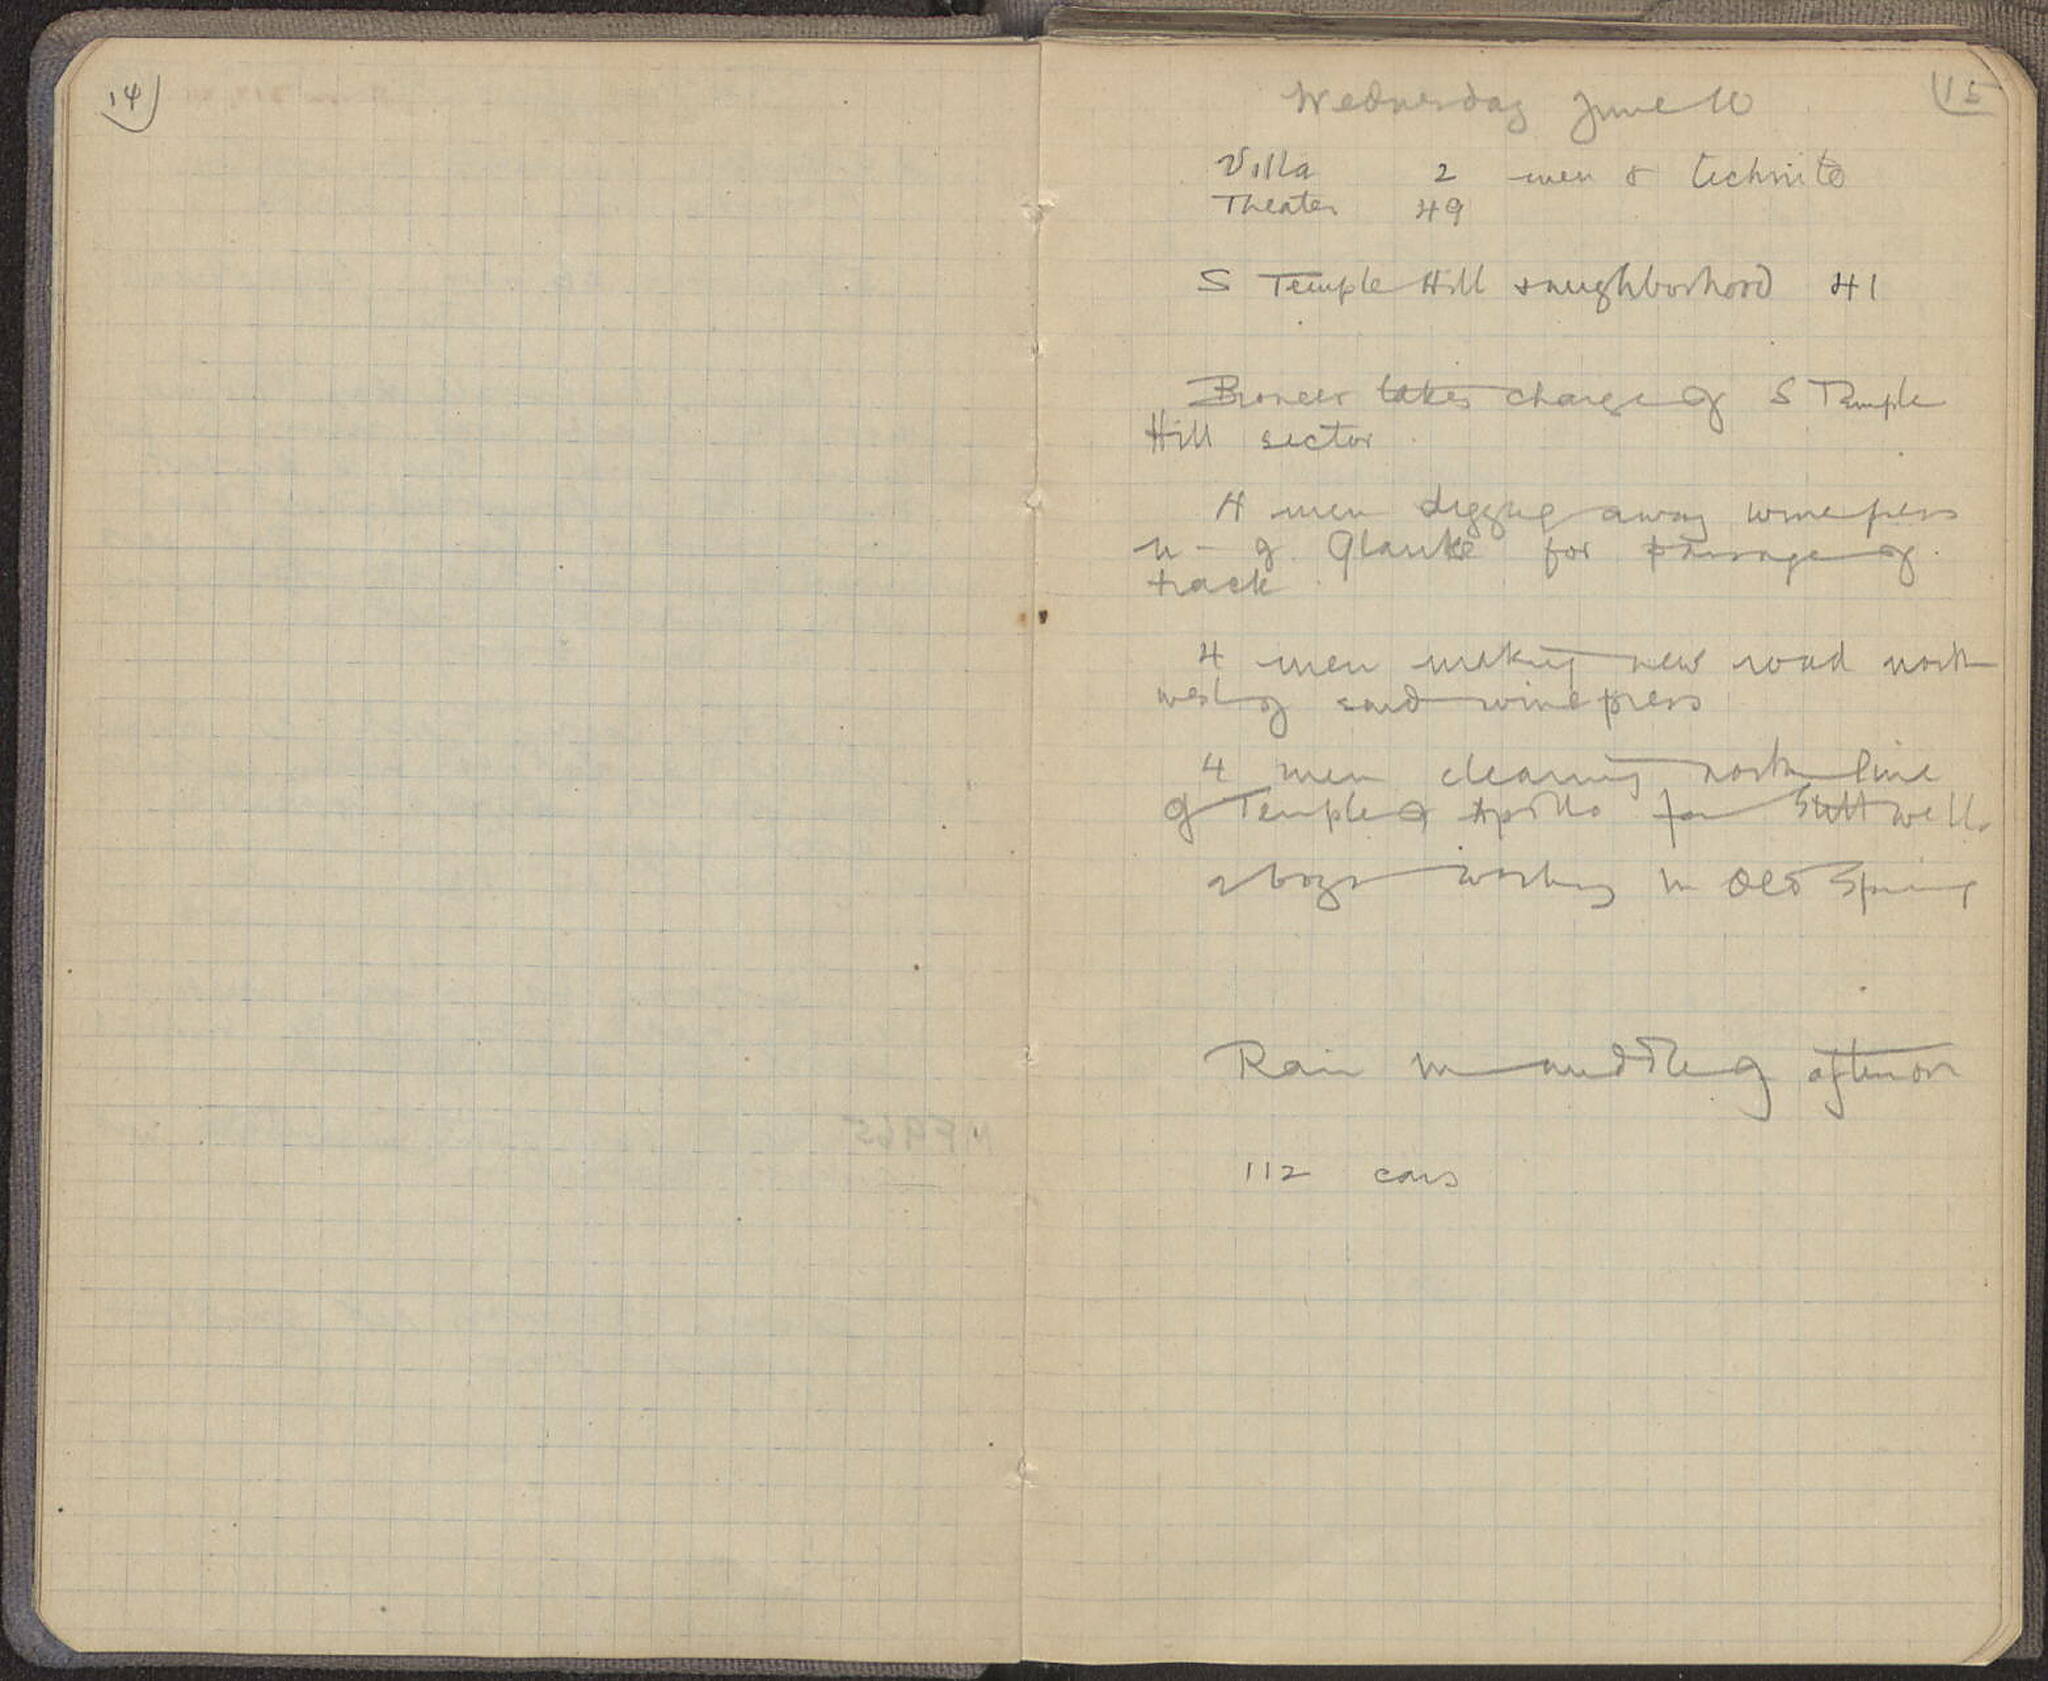 14
15
Wednesday June 10
Villa 2 men & technite
Theater 49
S Temple Hill & neighborhood 41
Broneer takes charge of S Temple
Hill sector
4 men digging away winepress
n - of Glauke for passage of
track
4 men making new road north
west of said winepress
4 men clearing north line
of Temple of Apollo for Stillwell
2 boys working in Old Spring
Rain in middle of afternoon
112 cars